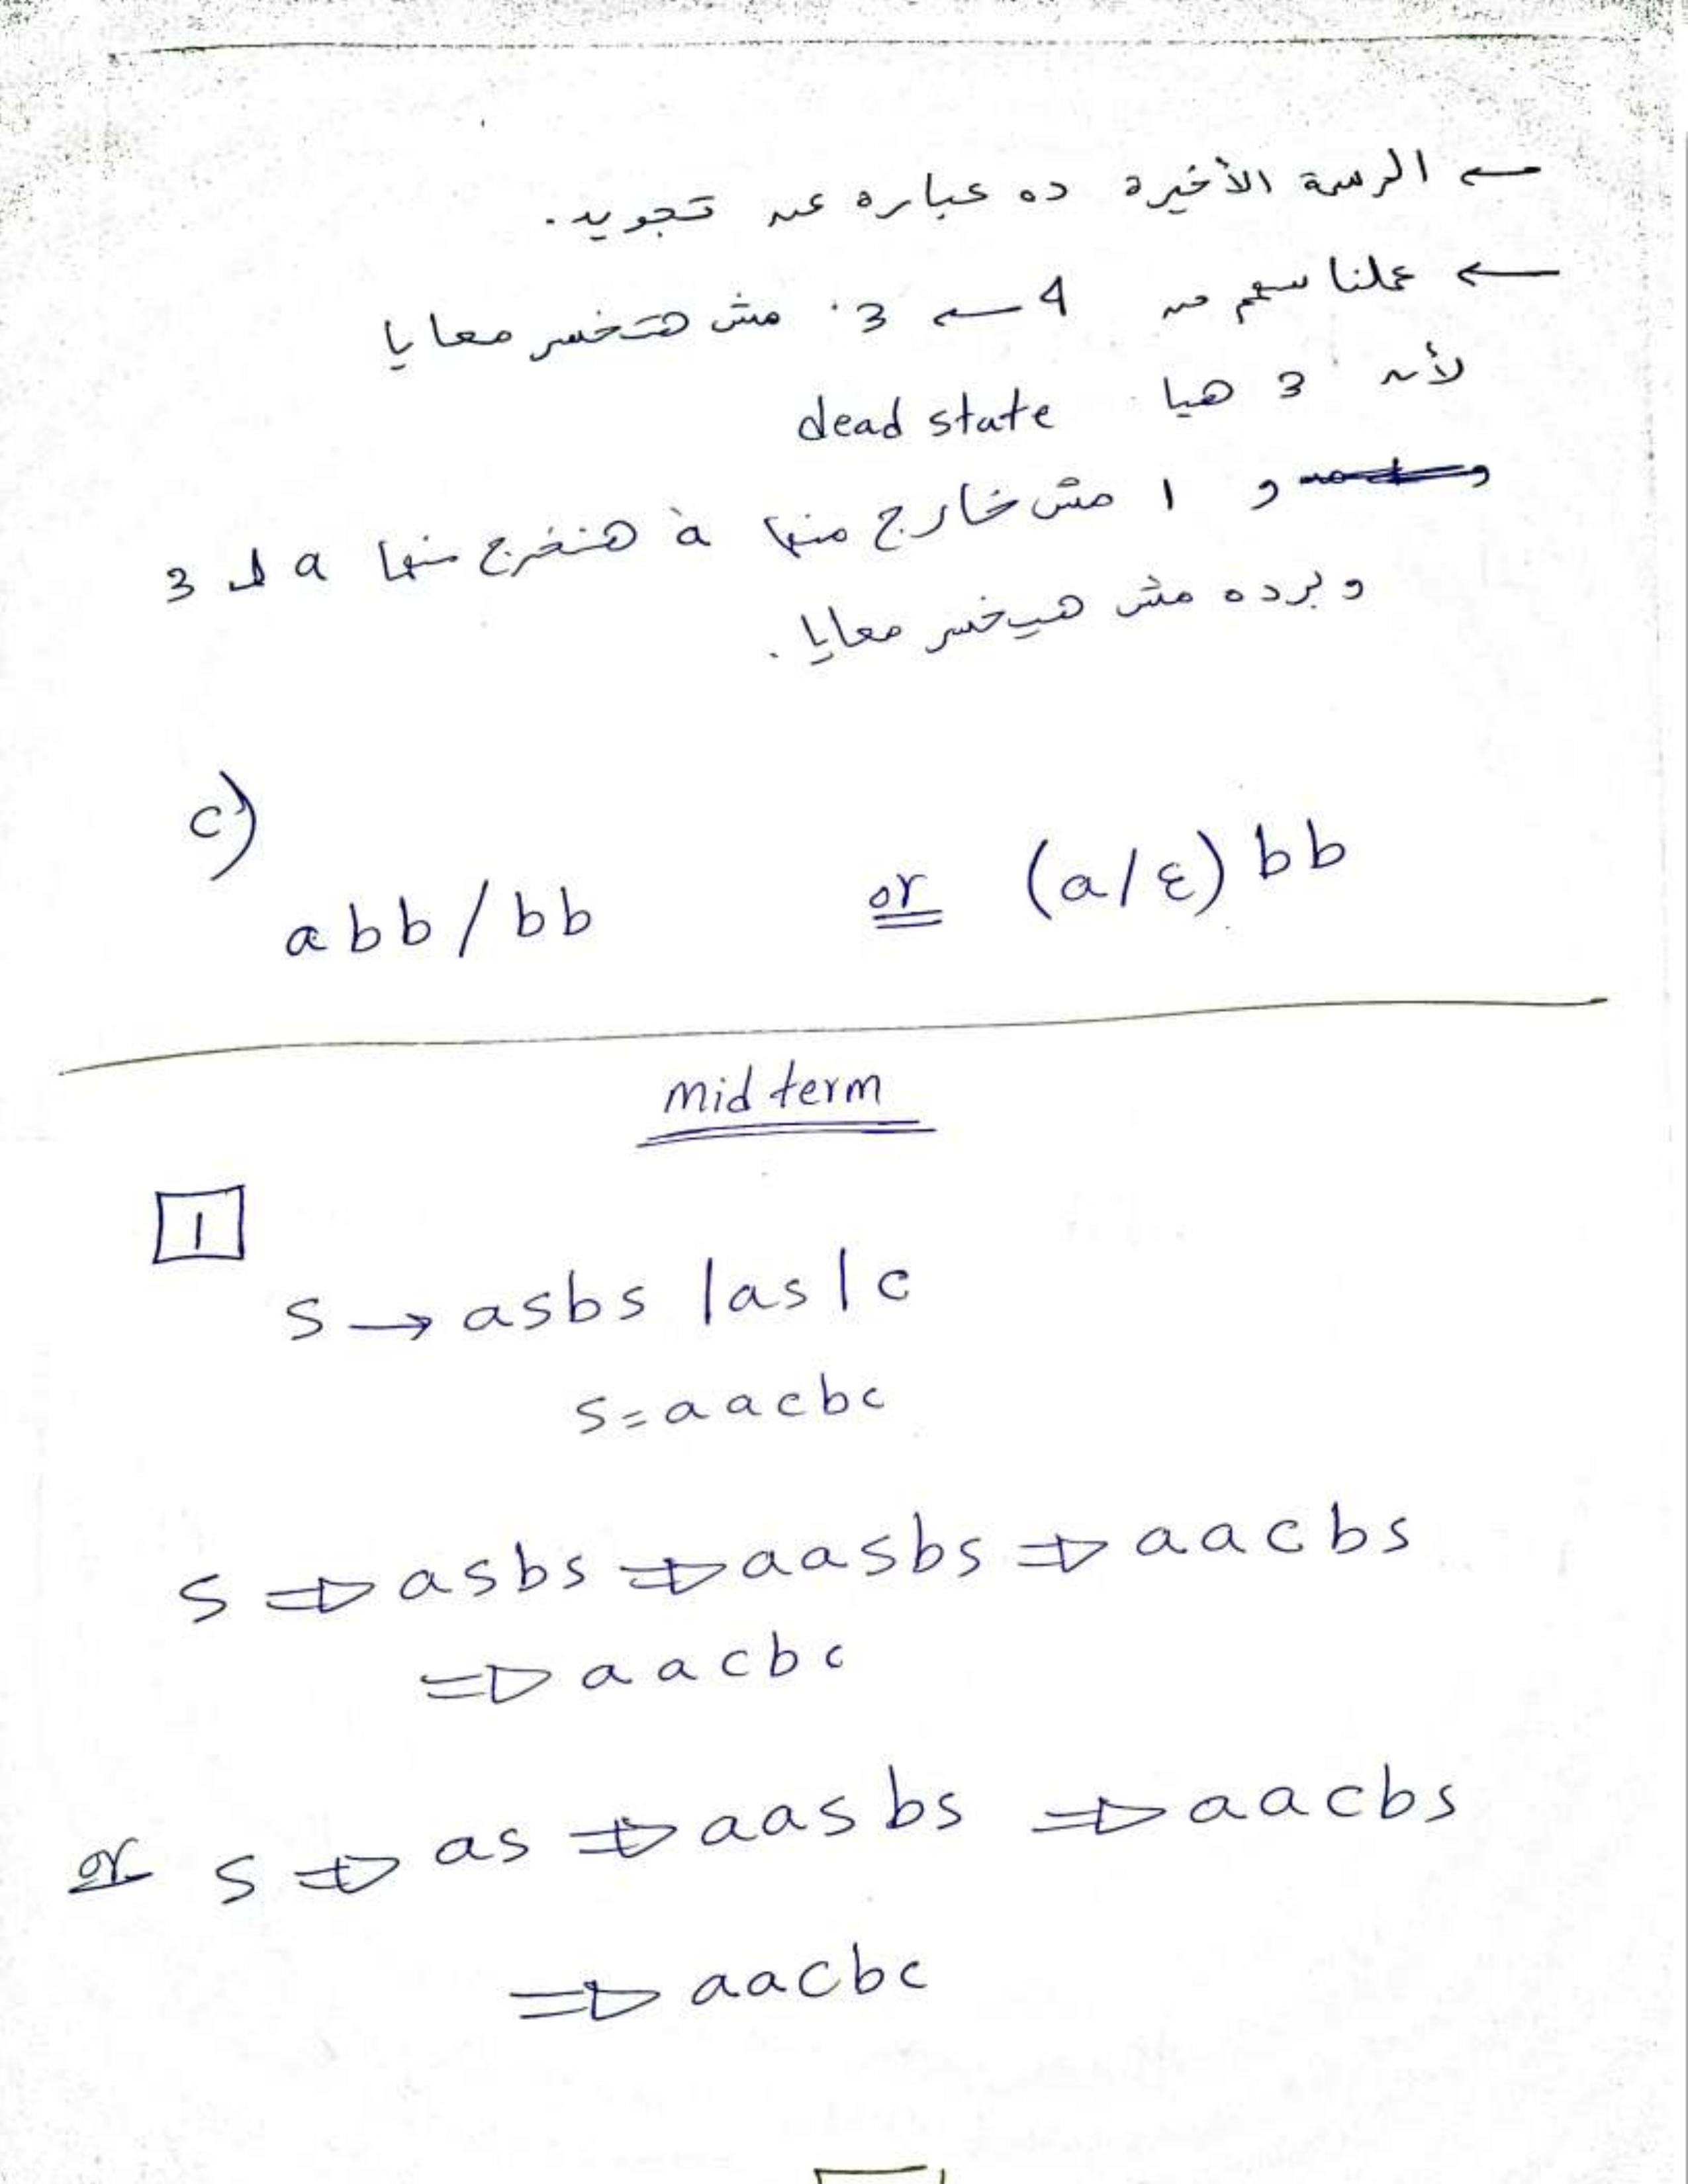 ← الرسمة الأخيرة ده عباره عن تجويد.
← عملنا سهم من 4 ← 3 مش هتخسر معايا
لأن 3 هيا dead state
و 1 مش خارج منها a هنخرج منها a لـ 3
وبرده مش هيخسر معايا.
c)
abb/bb or (a/ε)bb
mid term
1
S → asbs |as|c
S=aacbc
S ⇒ asbs ⇒ aasbs ⇒ aacbs
⇒ aacbc
or S ⇒ as ⇒ aasbs ⇒ aacbs
⇒ aacbc